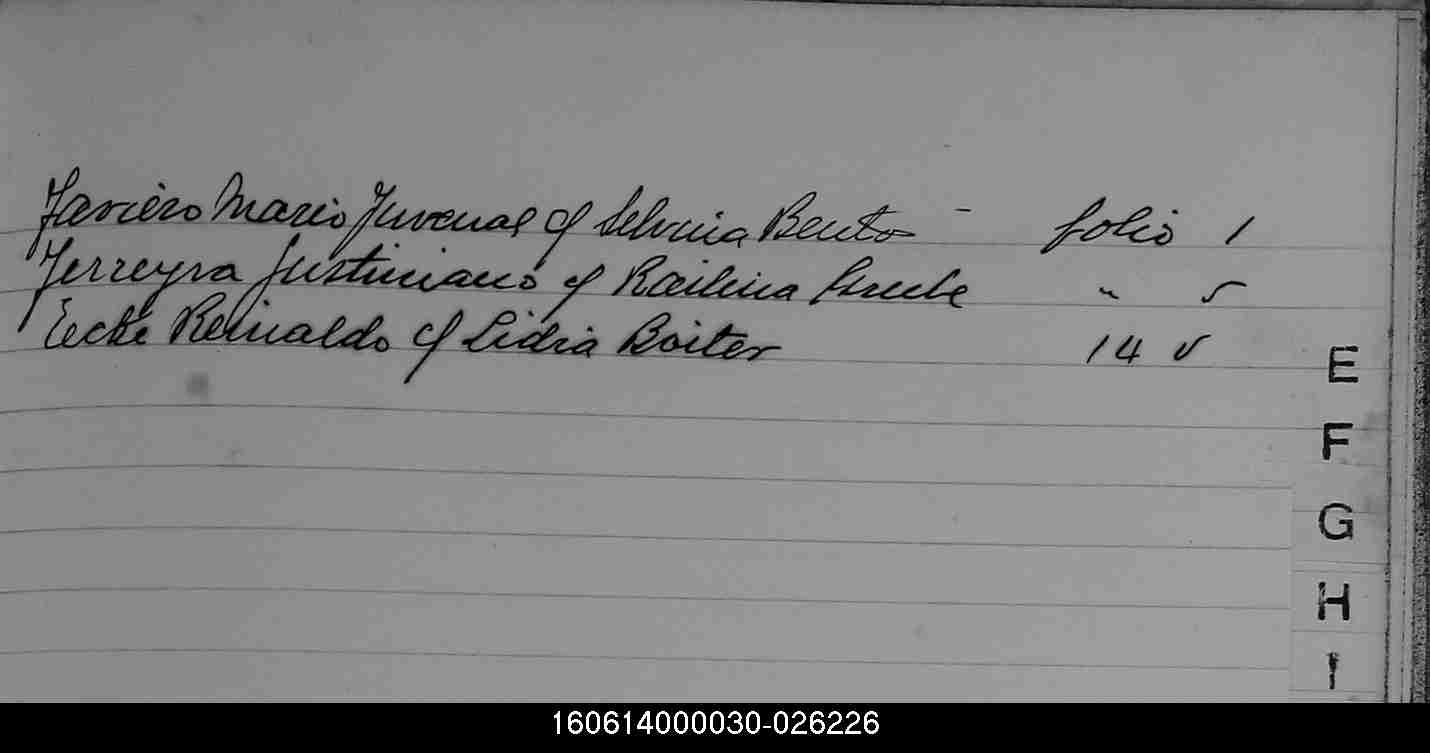 Javiero Mario Juvenal c/ Selvina Bento - folio 1
Ferreyra Justiniano c/ " 5
Reinaldo c/ Lidia Boiter 14 v
E
F
G
H
I
160614000030-026226